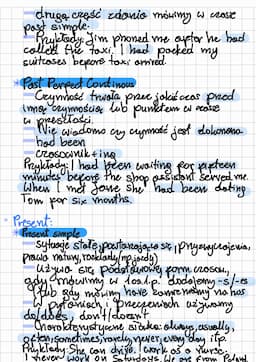 drugą część zdania mówimy w czasie
past simple.
Przykłady: Jim phoned me after he had
called the taxi. I had packed my
suitcases before taxi arrived.
Past Perfect Continous
Czynność trwała przez jakiś czas przed
inną czynnością lub punktem w czasie
w przeszłości.
Nie wiadomo czy czynność jest dokonana
had been
czasownik + ing
Przykłady: I had been waiting for fifteen
minutes before the shop assistant served me.
When I met Jane She had been dating
Tom for six months.
Present:
Present simple
Sytuacje stałe, powtarzające się, przyzwyczajenia,
prawa natury, rozkłady (np. jazdy)
Używa się podstawowej formy czasow,
gdy mówimy w 3 os. l.p. dodajemy -s/-es
lub gdy mówimy have zamieniamy na has
W pytaniach i przeczeniach używamy
do/does, don't/doesn't
Charakterystyczne słówka: always, usually,
often, sometimes, rarely, never, every day itp.
Przykłady: She can drive. I work as a nurse.
I never work on Sundays. We are from Poland